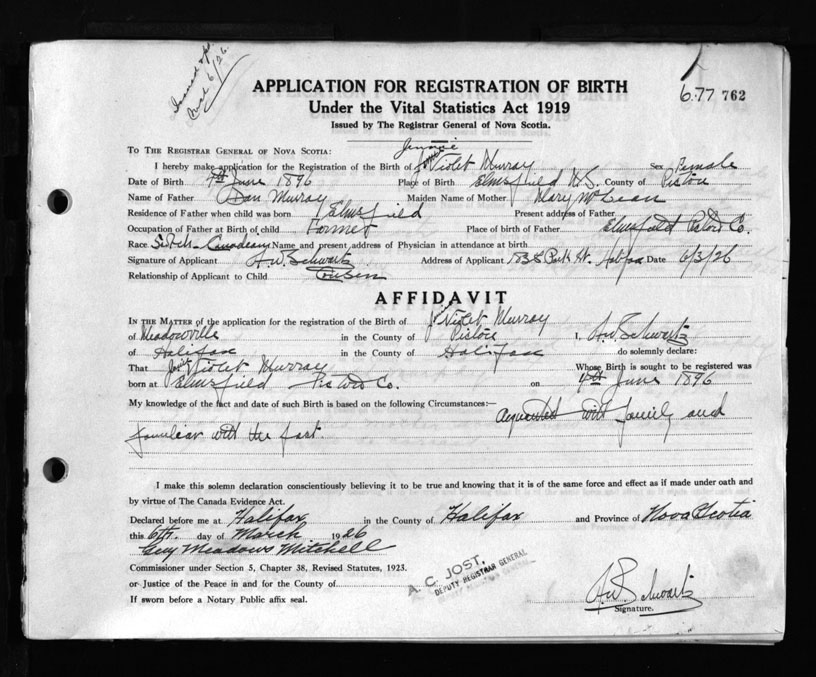 6/26.
APPLICATION FOR REGISTRATION OF BIRTH
Under the Vital Statistics Act 1919
677 762
Issued by The Registrar General of Nova Scotia.
Jennie
TO THE REGISTRAR GENERAL OF NOVA SCOTIA:
I hereby make application for the Registration of the Birth of Violet Murray Sex Female
Date of Birth 4th June 1896 Place of Birth Elmsfield N.S. County of Pictou
Name of Father Dan Murray Maiden Name of Mother Mary McLean
Residence of Father when child was born Elmsfield Present address of Father
Occupation of Father at Birth of child Farmer Place of birth of Father Elmsfield Pictou Co.
Race Scotch-Canadian Name and present address of Physician in attendance at birth
Signature of Applicant A.W. Schwartz Address of Applicant Park St. Halifax Date 6/3/26
Relationship of Applicant to Child Cousin
AFFIDAVIT
IN THE MATTER of the application for the registration of the Birth of Violet Murray
of Meadowville in the County of Pictou I, A.W. Schwartz
of Halifax in the County of Halifax do solemnly declare:
That Violet Murray Whose Birth is sought to be registered was
born at Elmsfield Pictou Co. on 4th June 1896
My knowledge of the fact and date of such Birth is based on the following Circumstances:— Acquainted with family and
familiar with the fact.
I make this solemn declaration conscientiously believing it to be true and knowing that it is of the same force and effect as if made under oath and
by virtue of The Canada Evidence Act.
Declared before me at Halifax in the County of Halifax and Province of Nova Scotia
this 6th. day of March 1926
Guy Meadows Mitchell
Commissioner under Section 5, Chapter 38, Revised Statutes, 1923.
or Justice of the Peace in and for the County of
A. C. JOST,
DEPUTY REGISTRAR GENERAL
If sworn before a Notary Public affix seal.
A.W. Schwartz
Signature.